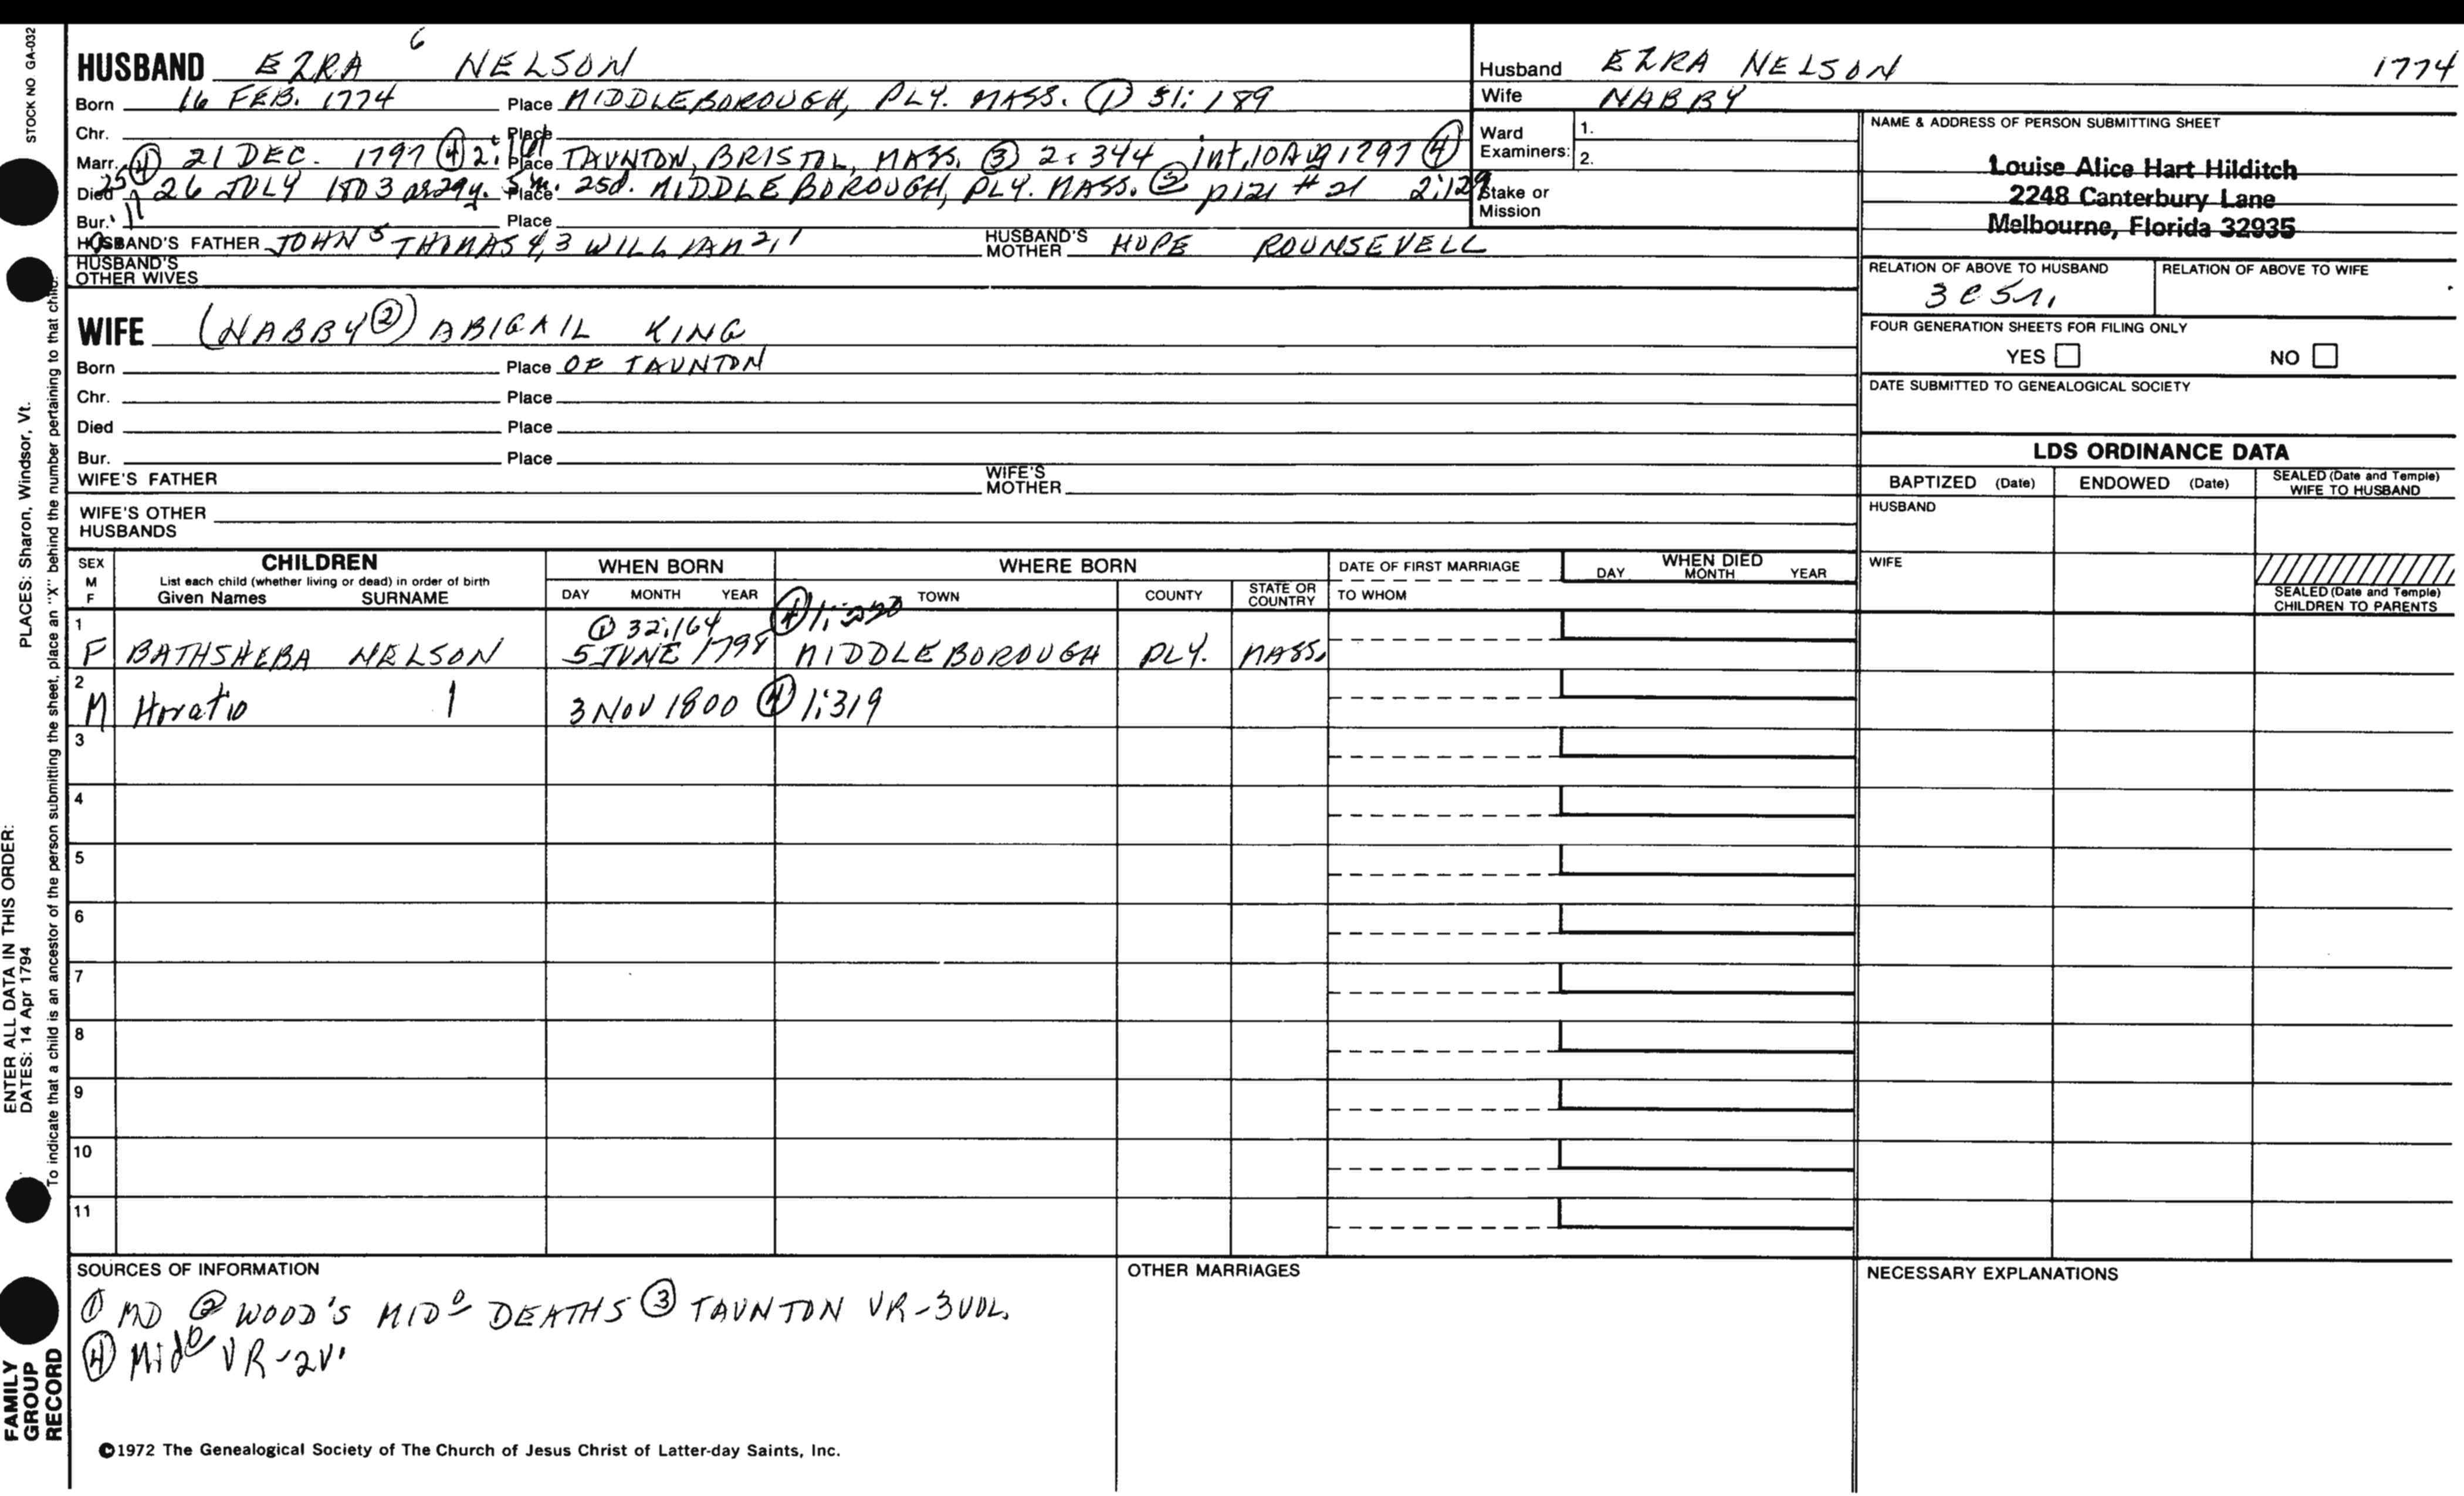 STOCK NO GA-032
PLACES: Sharon, Windsor, Vt.
ENTER ALL DATA IN THIS ORDER:
DATES: 14 Apr 1794
To indicate that a child is an ancestor of the person submitting the sheet, place an "X" behind the number pertaining to that child.
FAMILY
GROUP
RECORD
HUSBAND EZRA 6 NELSON
Born 16 FEB. 1774 Place MIDDLEBOROUGH, PLY. MASS. ① 31:189
Chr. Place
Marr. ④ 21 DEC. 1797 ④ 2: Place TAUNTON, BRISTOL, MASS. ③ 2:344 int, 10 Aug 1797 ④
25 ④
Died 26 JULY 1803 as 29y. 5 m. 25d. Place MIDDLEBOROUGH, PLY. MASS. ② p121 #21 2:129
Bur. Place
HUSBAND'S FATHER JOHN 5 THOMAS 4,3 WILLIAM 2,1 HUSBAND'S MOTHER HOPE ROUNSEVELL
HUSBAND'S
OTHER WIVES
WIFE (NABBY ②) ABIGAIL KING
Born Place OF TAUNTON
Chr. Place
Died Place
Bur. Place
WIFE'S FATHER WIFE'S MOTHER
WIFE'S OTHER
HUSBANDS
Husband EZRA NELSON 1774
Wife NABBY
Ward
Examiners: 1.
2.
Stake or
Mission
NAME & ADDRESS OF PERSON SUBMITTING SHEET
Louise Alice Hart Hilditch
2248 Canterbury Lane
Melbourne, Florida 32935
RELATION OF ABOVE TO HUSBAND RELATION OF ABOVE TO WIFE
3 C 5 r.
FOUR GENERATION SHEETS FOR FILING ONLY
YES NO
DATE SUBMITTED TO GENEALOGICAL SOCIETY
LDS ORDINANCE DATA
BAPTIZED (Date) ENDOWED (Date) SEALED (Date and Temple)
WIFE TO HUSBAND
HUSBAND
WIFE
SEALED (Date and Temple)
CHILDREN TO PARENTS
SEX
M
F
CHILDREN
List each child (whether living or dead) in order of birth
Given Names SURNAME
WHEN BORN
DAY MONTH YEAR
WHERE BORN
TOWN COUNTY STATE OR
COUNTRY
DATE OF FIRST MARRIAGE
TO WHOM
WHEN DIED
DAY MONTH YEAR
1 ① 32:164 ④
F BATHSHEBA NELSON 5 JUNE 1798 MIDDLEBOROUGH PLY. MASS.
2
M Horatio 1 3 Nov 1800 ④ 1:319
3
4
5
6
7
8
9
10
11
SOURCES OF INFORMATION
① MD ② WOOD'S MIDo DEATHS ③ TAUNTON VR-3VOL.
④ Mido VR-2V.
OTHER MARRIAGES
NECESSARY EXPLANATIONS
©1972 The Genealogical Society of The Church of Jesus Christ of Latter-day Saints, Inc.